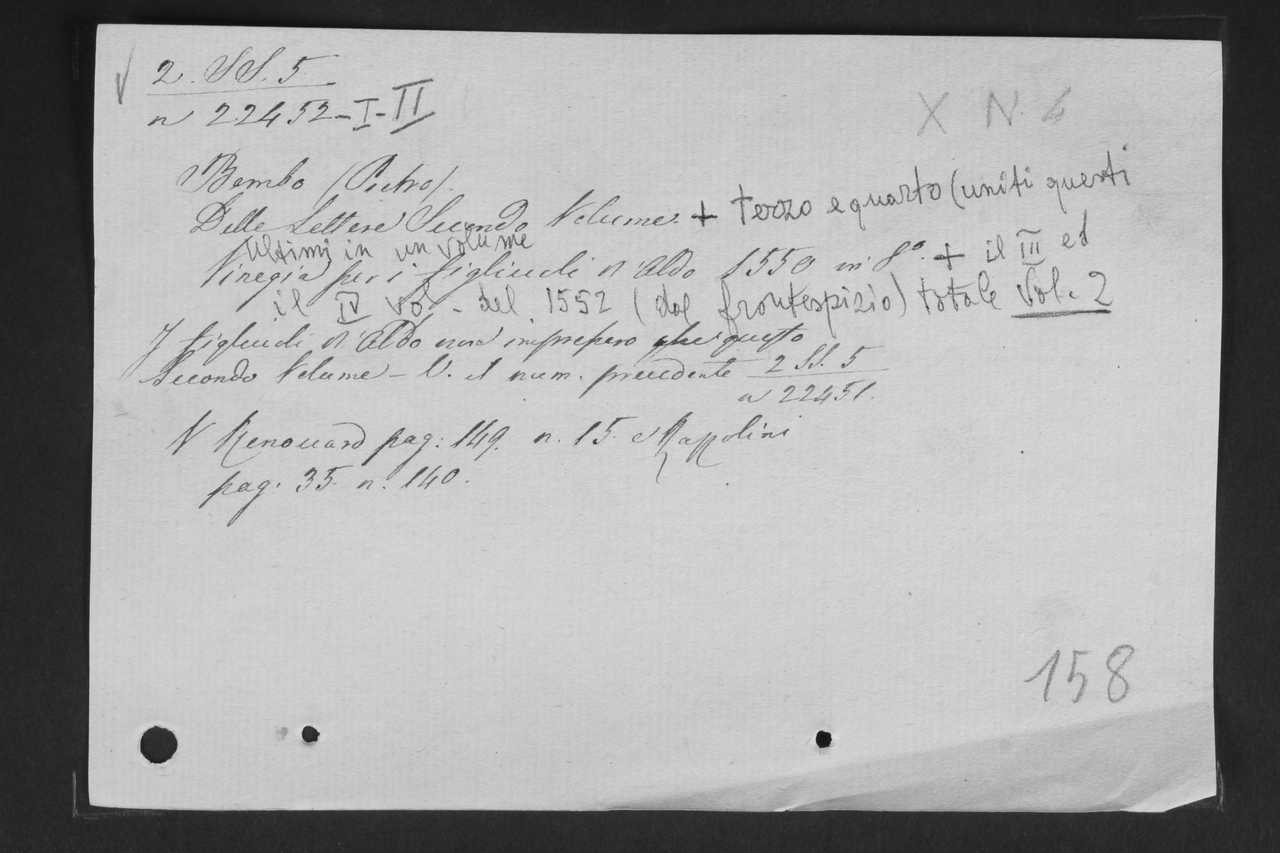 2. SS. 5
n 22452-I-II
X N. 4
Bembo (Pietro).
Delle Lettere Secondo Volume + terzo e quarto (uniti questi
ultimi in un volume
Vinegia per i figliuoli d'Aldo 1550 in 8°. + il III ed
il IV vol. del 1552 (dal frontespizio) totale Vol. 2
I figliuoli d'Aldo non impressero che questo
Secondo Volume - V. il num. precedente 2 SS. 5
n 22451.
V Renouard pag: 149. n. 15. e
pag. 35. n. 140.
158